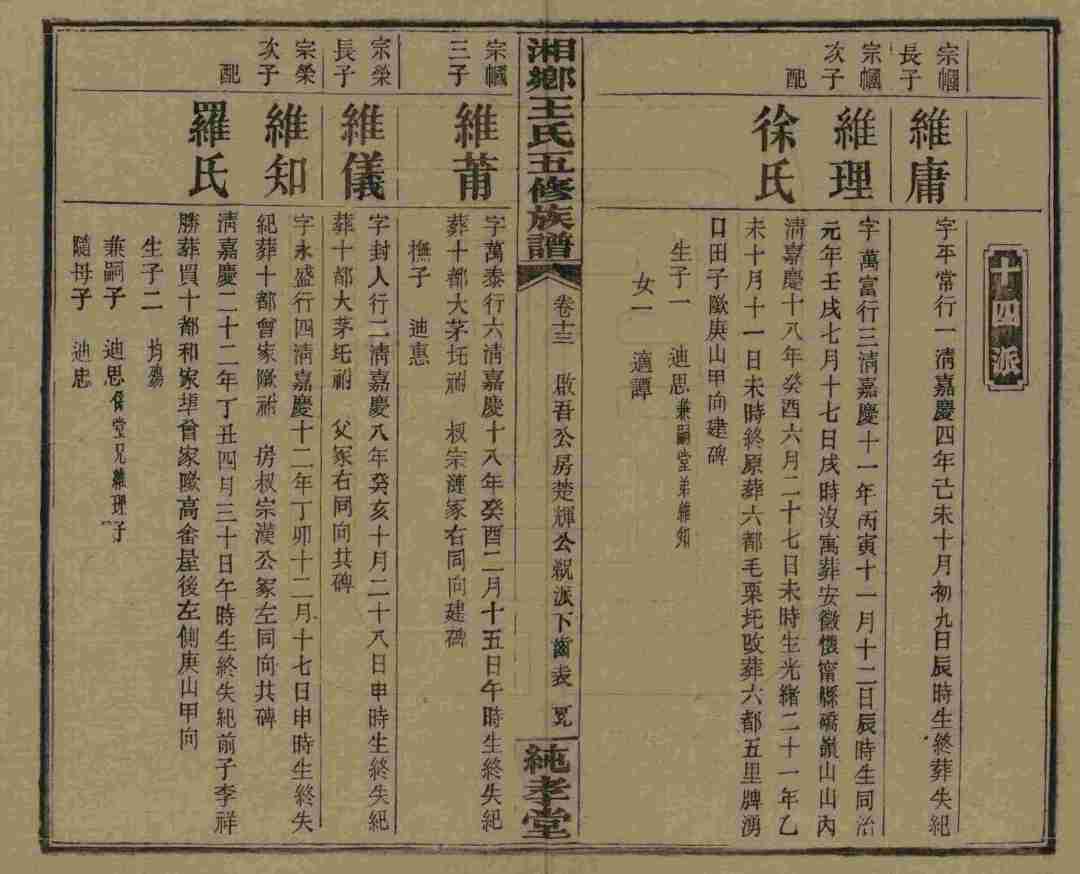 十四派
宗幗
長子
維庸
字平常行一清嘉慶四年己未十月初九日辰時生終葬失紀
宗幗
次子
維理
字萬富行三清嘉慶十一年丙寅十一月十二日辰時生同治
元年壬戌七月十七日戌時沒寓葬安徽懷甯縣礄嶺山山內
配
徐氏
清嘉慶十八年癸酉六月二十七日未時生光緒二十一年乙
未十月十一日未時終原葬六都毛栗圫改葬六都五里牌湧
口田子墩庚山甲向建碑
生子一 迪思兼嗣堂弟維知
女一 適譚
湘鄉王氏五修族譜
卷十三 啟吾公房楚輝公親派下齒表
純孝堂
宗幗
三子
維莆
字萬泰行六清嘉慶十八年癸酉二月十五日午時生終失紀
葬十都大茅圫祔 叔宗漣冢右同向建碑
撫子 迪惠
宗榮
長子
維儀
字封人行二清嘉慶八年癸亥十月二十八日申時生終失紀
葬十都大茅圫祔 父冢右同向共碑
宗榮
次子
維知
字永盛行四清嘉慶十二年丁卯十二月十七日申時生終失
紀葬十都曾家墩祔 房叔宗漢公冢左同向共碑
配
羅氏
清嘉慶二十二年丁丑四月三十日午時生終失紀前子李祥
勝葬買十都和家埠曾家墩高畬屋後左側庚山甲向
生子二 均殤
兼嗣子 迪思係堂兄維理子
隨母子 迪忠